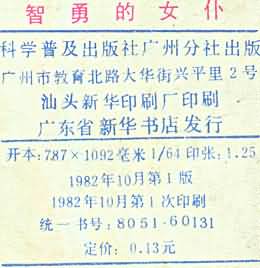 智勇的女仆
科学普及出版社广州分社出版
广州市教育北路大华街兴平里2号
汕头新华印刷厂印刷
广东省新华书店发行
开本:787×1092毫米1/64印张:1.25
1982年10月第1版
1982年10月第1次印刷
统一书号:8051-60131
定价:0.13元